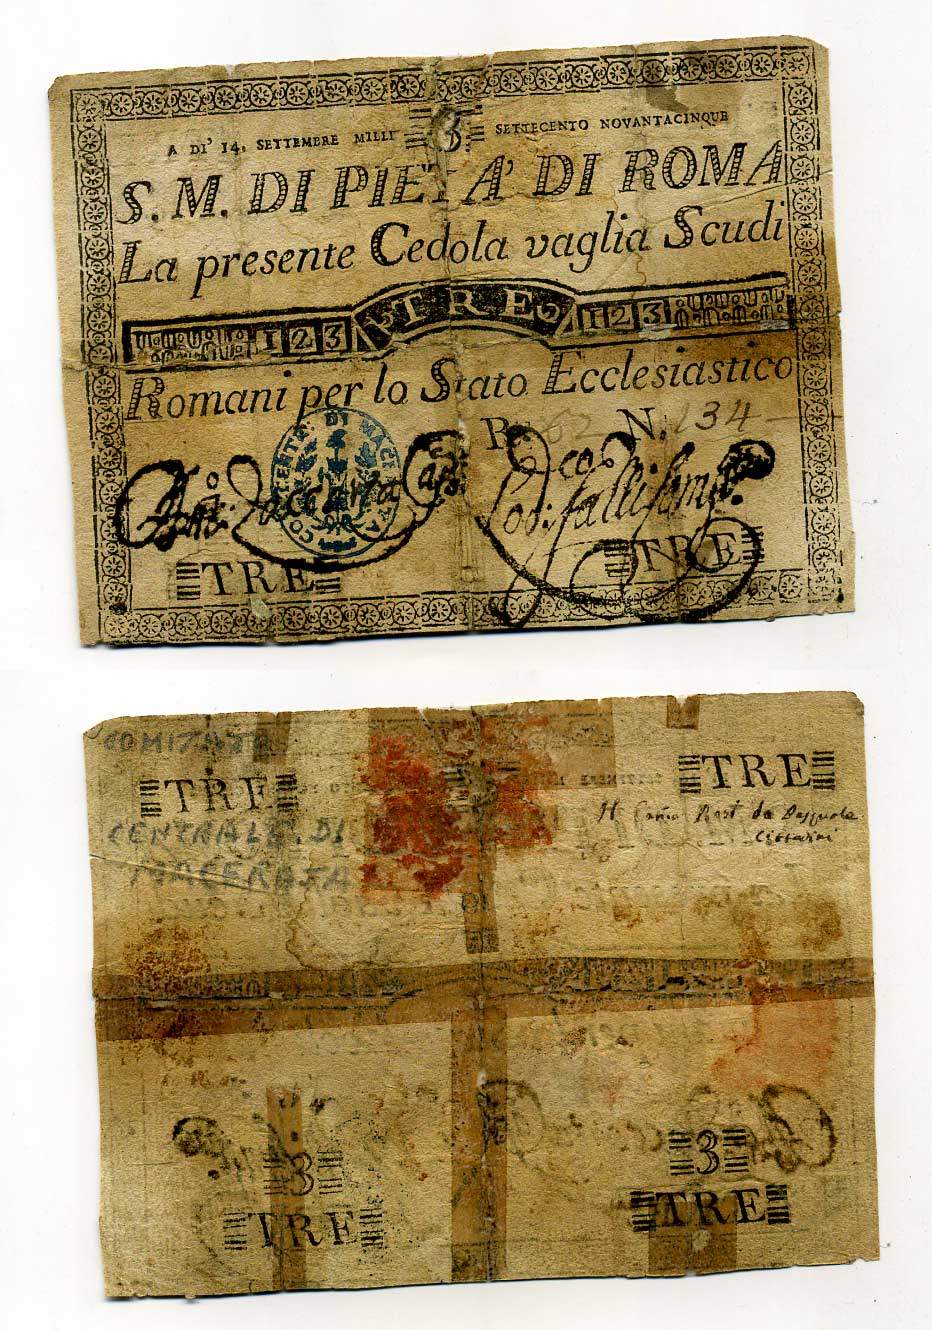 A DI' 14. SETTEMBRE MILLE 3 SETTECENTO NOVANTACINQUE
S. M. DI PIETA' DI ROMA
La presente Cedola vaglia Scudi
3
123 TRE 123
Romani per lo Stato Ecclesiastico
R. 62 N. 134
COMENTE. DI MACERATA
TRE TRE
COMITATO
TRE TRE
CENTRALE. DI
MACERATA
3 3
TRE TRE